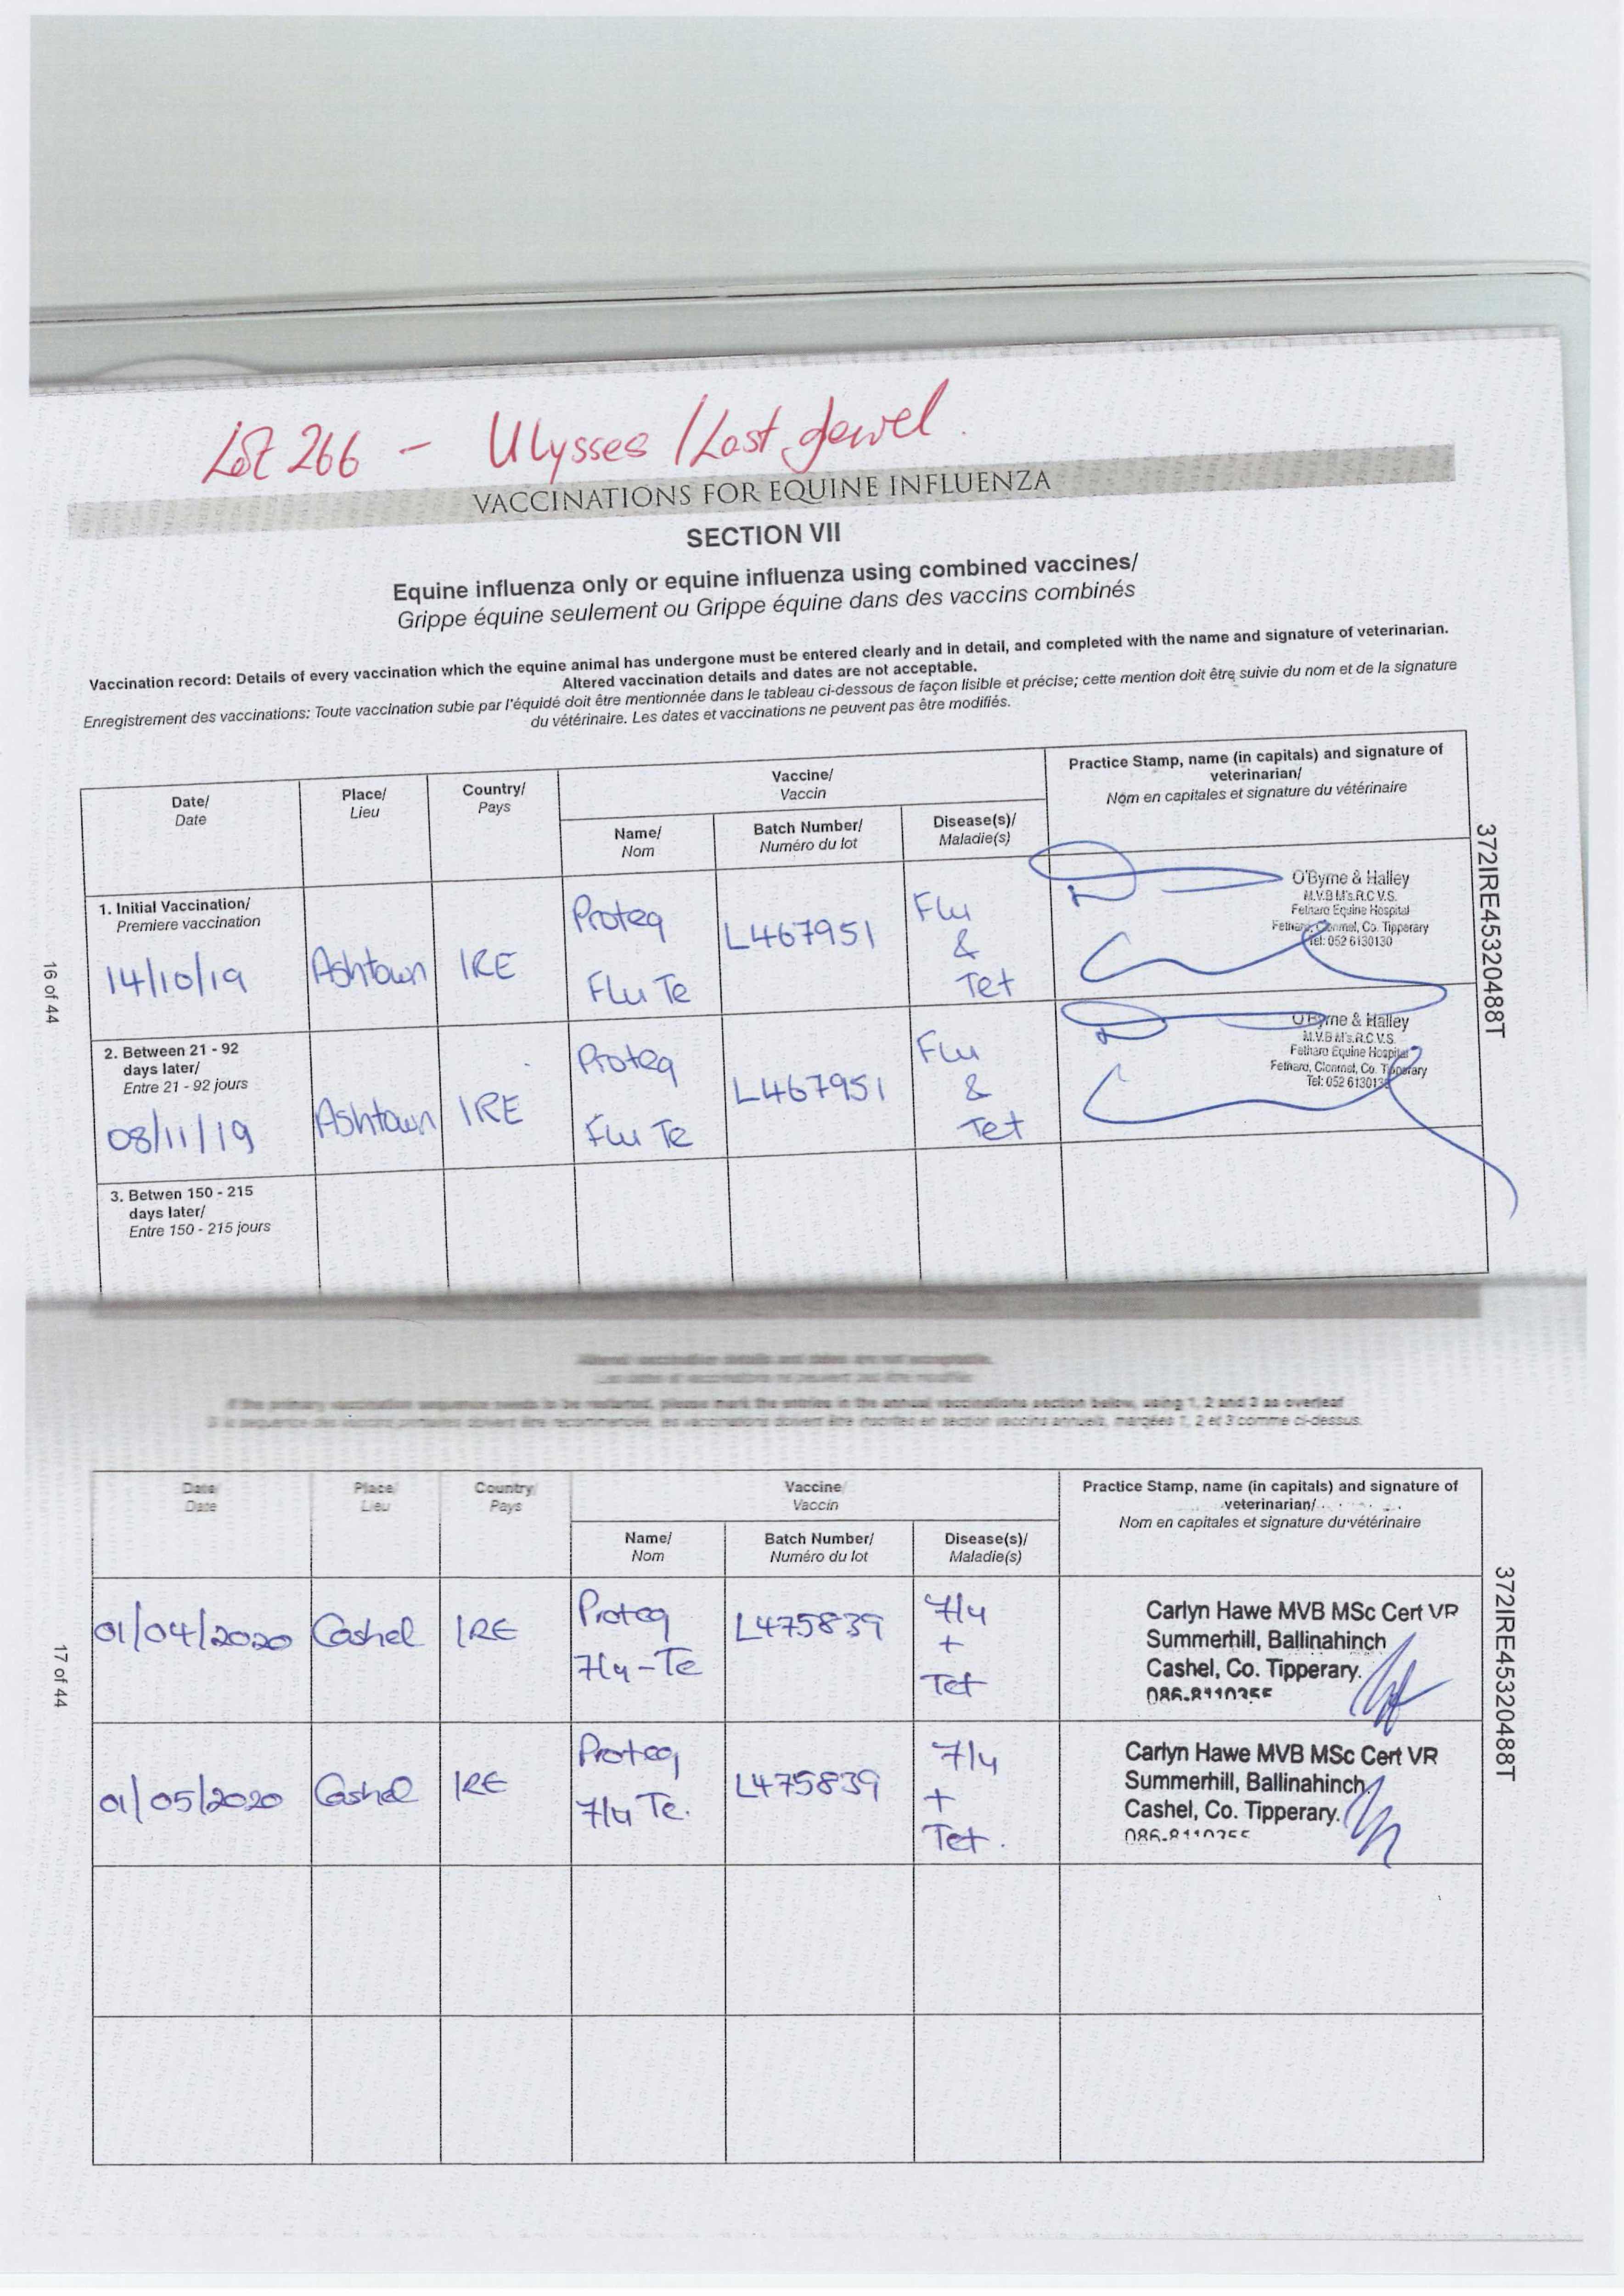 Lot 266 - Ulysses / Last Jewel.
VACCINATIONS FOR EQUINE INFLUENZA
SECTION VII
Equine influenza only or equine influenza using combined vaccines/
Grippe équine seulement ou Grippe équine dans des vaccins combinés
Vaccination record: Details of every vaccination which the equine animal has undergone must be entered clearly and in detail, and completed with the name and signature of veterinarian.
Altered vaccination details and dates are not acceptable.
Enregistrement des vaccinations: Toute vaccination subie par l'équidé doit être mentionnée dans le tableau ci-dessous de façon lisible et précise; cette mention doit être suivie du nom et de la signature
du vétérinaire. Les dates et vaccinations ne peuvent pas être modifiés.
Date/
Date
Place/
Lieu
Country/
Pays
Vaccine/
Vaccin
Name/
Nom
Batch Number/
Numéro du lot
Disease(s)/
Maladie(s)
Practice Stamp, name (in capitals) and signature of
veterinarian/
Nom en capitales et signature du vétérinaire
1. Initial Vaccination/
Premiere vaccination
14/10/19
Ashtown
IRE
Proteq
Flu Te
L467951
Flu
&
Tet
O'Byrne & Halley
M.V.B M's.R.C.V.S.
Fethard Equine Hospital
Fethard, Clonmel, Co. Tipperary
Tel: 052 6130130
2. Between 21 - 92
days later/
Entre 21 - 92 jours
08/11/19
Ashtown
IRE
Proteq
Flu Te
L467951
Flu
&
Tet
O'Byrne & Halley
M.V.B M's.R.C.V.S.
Fethard Equine Hospital
Fethard, Clonmel, Co. Tipperary
Tel: 052 613013
3. Betwen 150 - 215
days later/
Entre 150 - 215 jours
16 of 44
372IRE45320488T
Altered vaccination details and dates are not acceptable.
If the primary vaccination sequence needs to be restarted, please mark the entries in the annual vaccinations section below, using 1, 2 and 3 as overleaf
en section vaccins annuels, marquées 1, 2 et 3 comme ci-dessus.
Date/
Date
Place/
Lieu
Country/
Pays
Vaccine/
Vaccin
Name/
Nom
Batch Number/
Numéro du lot
Disease(s)/
Maladie(s)
Practice Stamp, name (in capitals) and signature of
veterinarian/
Nom en capitales et signature du vétérinaire
01/04/2020
Cashel
IRE
Proteq
Flu-Te
L475839
Flu
+
Tet
Carlyn Hawe MVB MSc Cert VR
Summerhill, Ballinahinch
Cashel, Co. Tipperary.
01/05/2020
Cashel
IRE
Proteq
Flu Te.
L475839
Flu
+
Tet.
Carlyn Hawe MVB MSc Cert VR
Summerhill, Ballinahinch
Cashel, Co. Tipperary.
17 of 44
372IRE45320488T